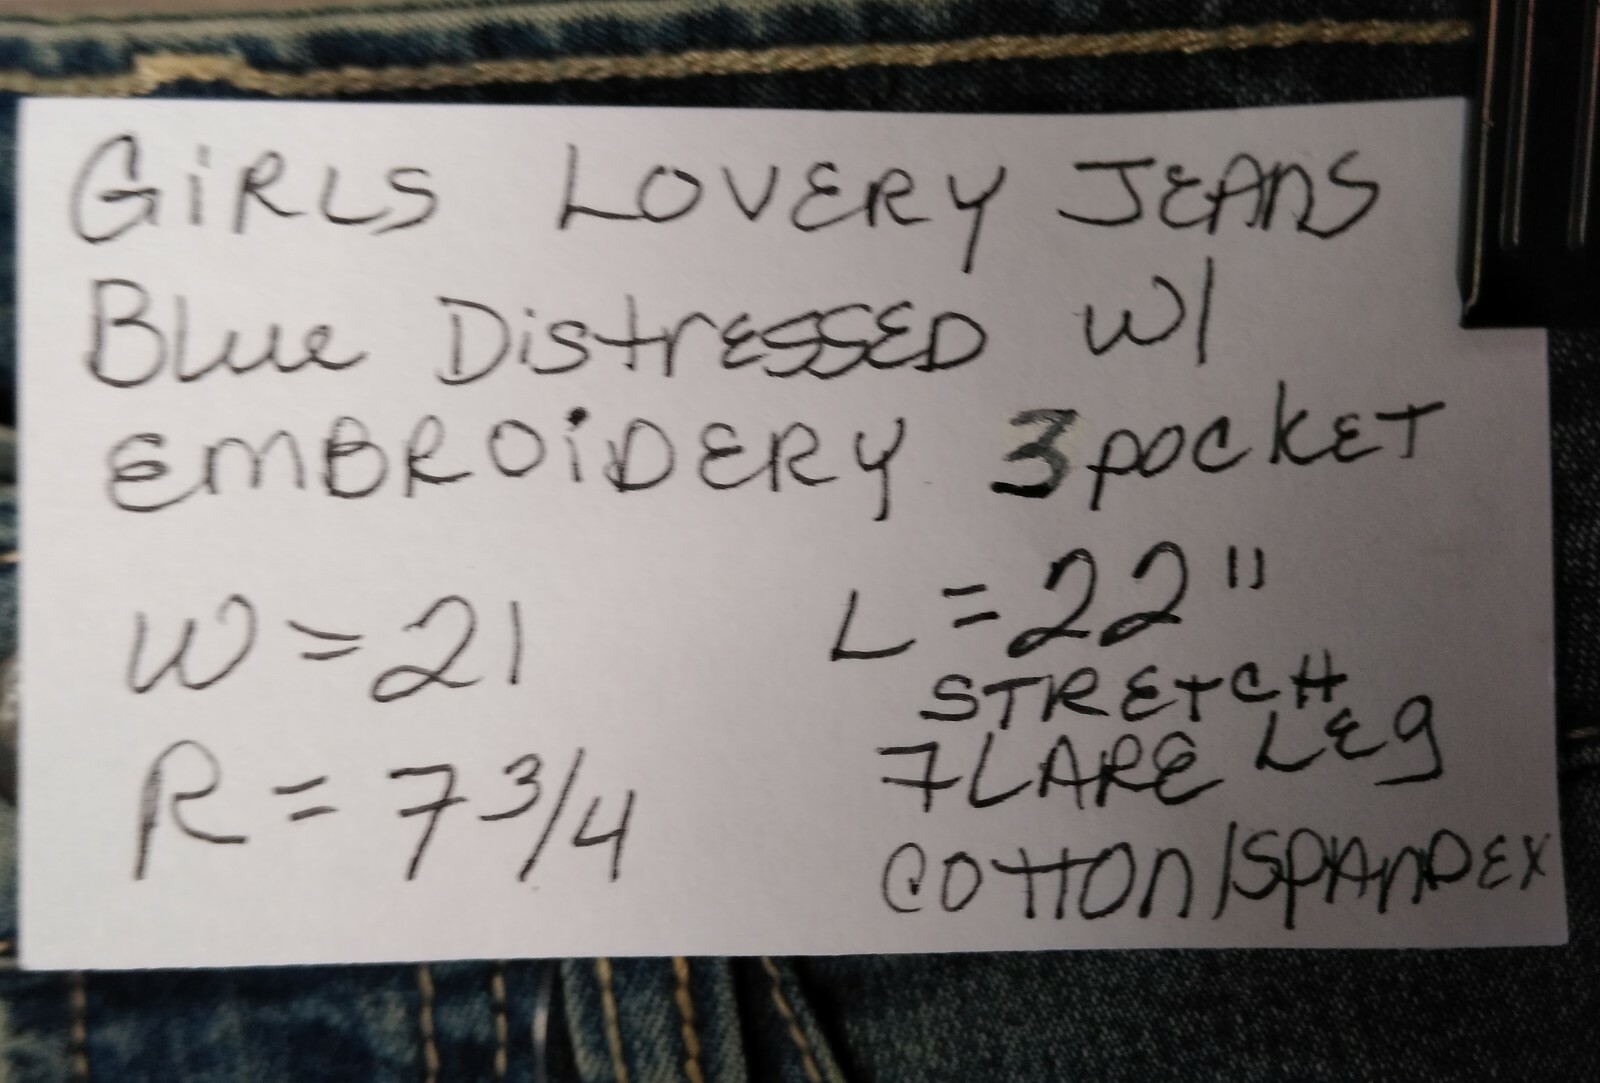 GiRLS LOVERY JEANS
Blue DistrESSED w/
EMBROiDERY 3 pOCKET
W = 21
L = 22"
STRETCH
R = 7 3/4
FLARE LEg
COTTON/SPANDEX